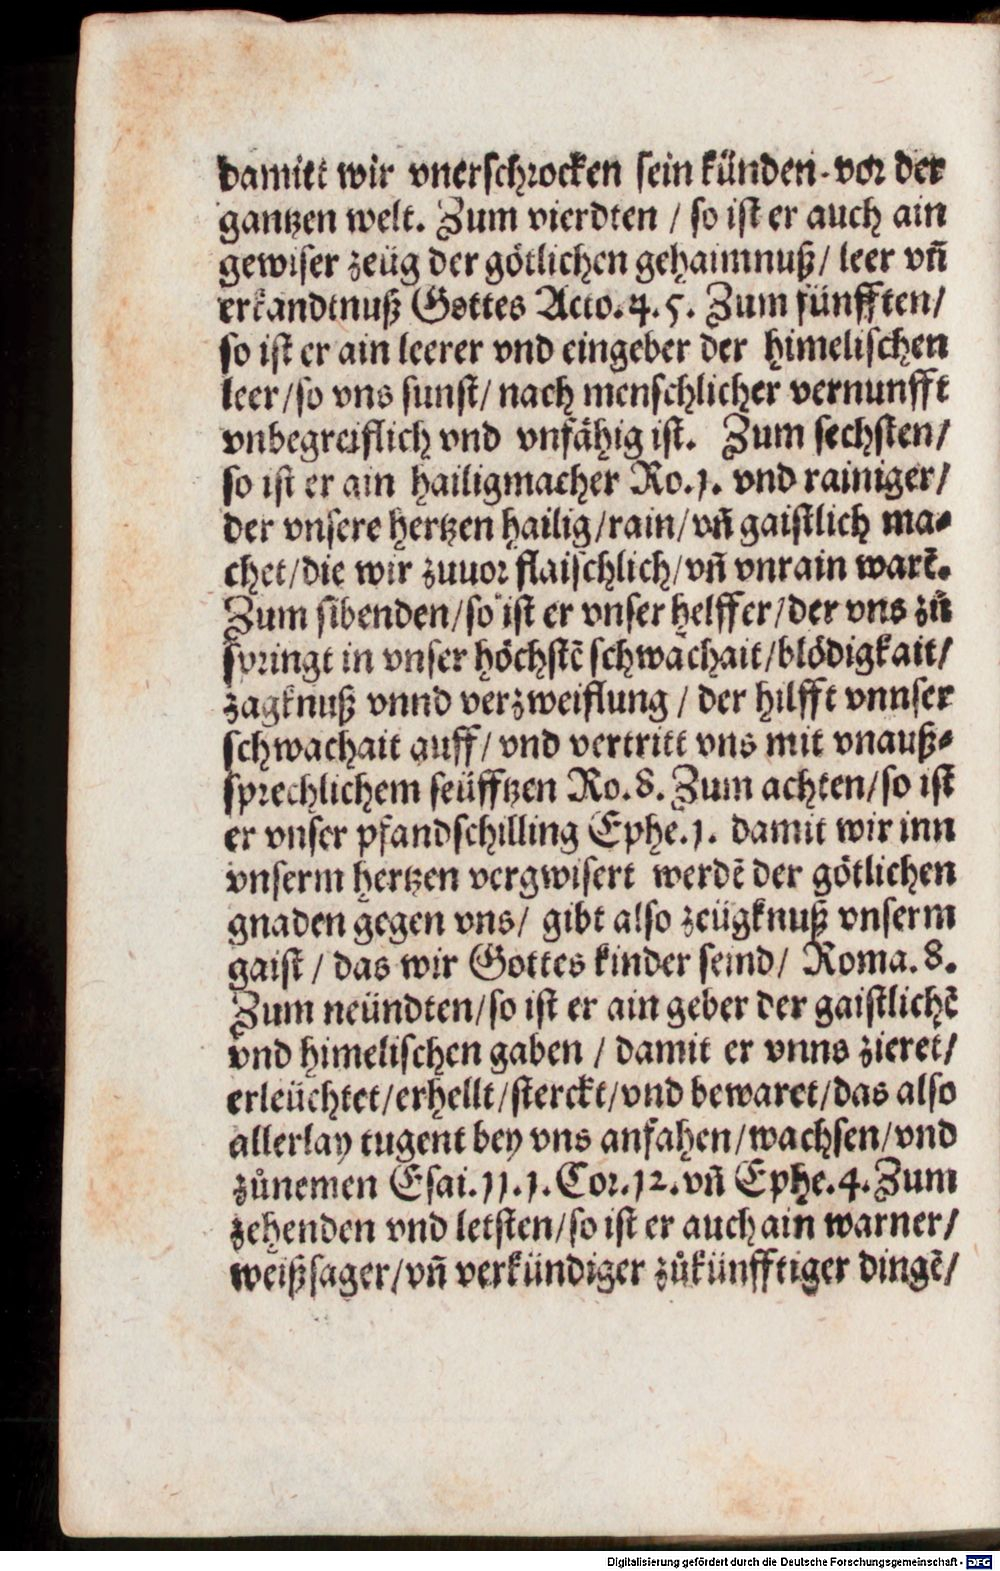 damitt wir vnerschrocken sein künden. vor der
gantzen welt. Zum vierdten / so ist er auch ain
gewiser zeüg der götlichen gehaimnuß/ leer vñ
erkandtnuß Gottes Acto. 4. 5. Zum fünfften/
so ist er ain leerer vnd eingeber der himelischen
leer/so vns sunst/ nach menschlicher vernunfft
vnbegreiflich vnd vnfähig ist. Zum sechsten/
so ist er ain hailigmacher Ro.1. vnd rainiger/
der vnsere hertzen hailig/rain/vñ gaistlich ma⸗
chet/die wir zuuor flaischlich/vñ vnrain warẽ.
Zum sibenden/so ist er vnser helffer/der vns zů
springt in vnser höchstẽ schwachait/blödigkait/
zagknuß vnnd verzweiflung / der hilfft vnnser
schwachait auff/ vnd vertritt vns mit vnauß⸗
sprechlichem seüfftzen Ro. 8. Zum achten/so ist
er vnser pfandschilling Ephe. 1. damit wir inn
vnserm hertzen vergwisert werdẽ der götlichen
gnaden gegen vns/ gibt also zeügknuß vnserm
gaist / das wir Gottes kinder seind/ Roma. 8.
Zum neündten/so ist er ain geber der gaistlichẽ
vnd himelischen gaben / damit er vnns zieret/
erleüchtet/erhellt/sterckt/vnd bewaret/das also
allerlay tugent bey vns anfahen/wachsen/vnd
zůnemen Esai. 11. 1. Cor. 12. vñ Ephe. 4. Zum
zehenden vnd letsten/so ist er auch ain warner/
weißsager/vñ verkündiger zůkünfftiger dingẽ/
Digitalisierung gefördert durch die Deutsche Forschungsgemeinschaft - DFG